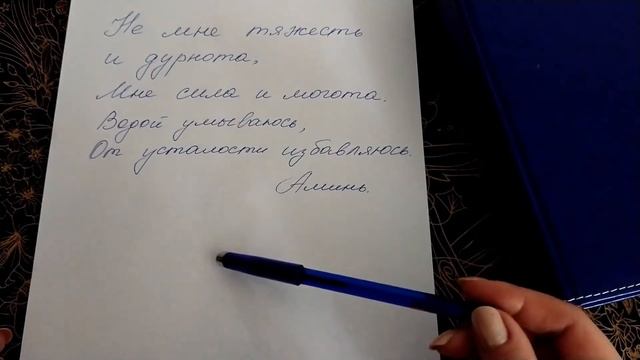 Не мне тяжесть
и дурнота,
Мне сила и могота.
Водой умываюсь,
От усталости избавляюсь.
Аминь.